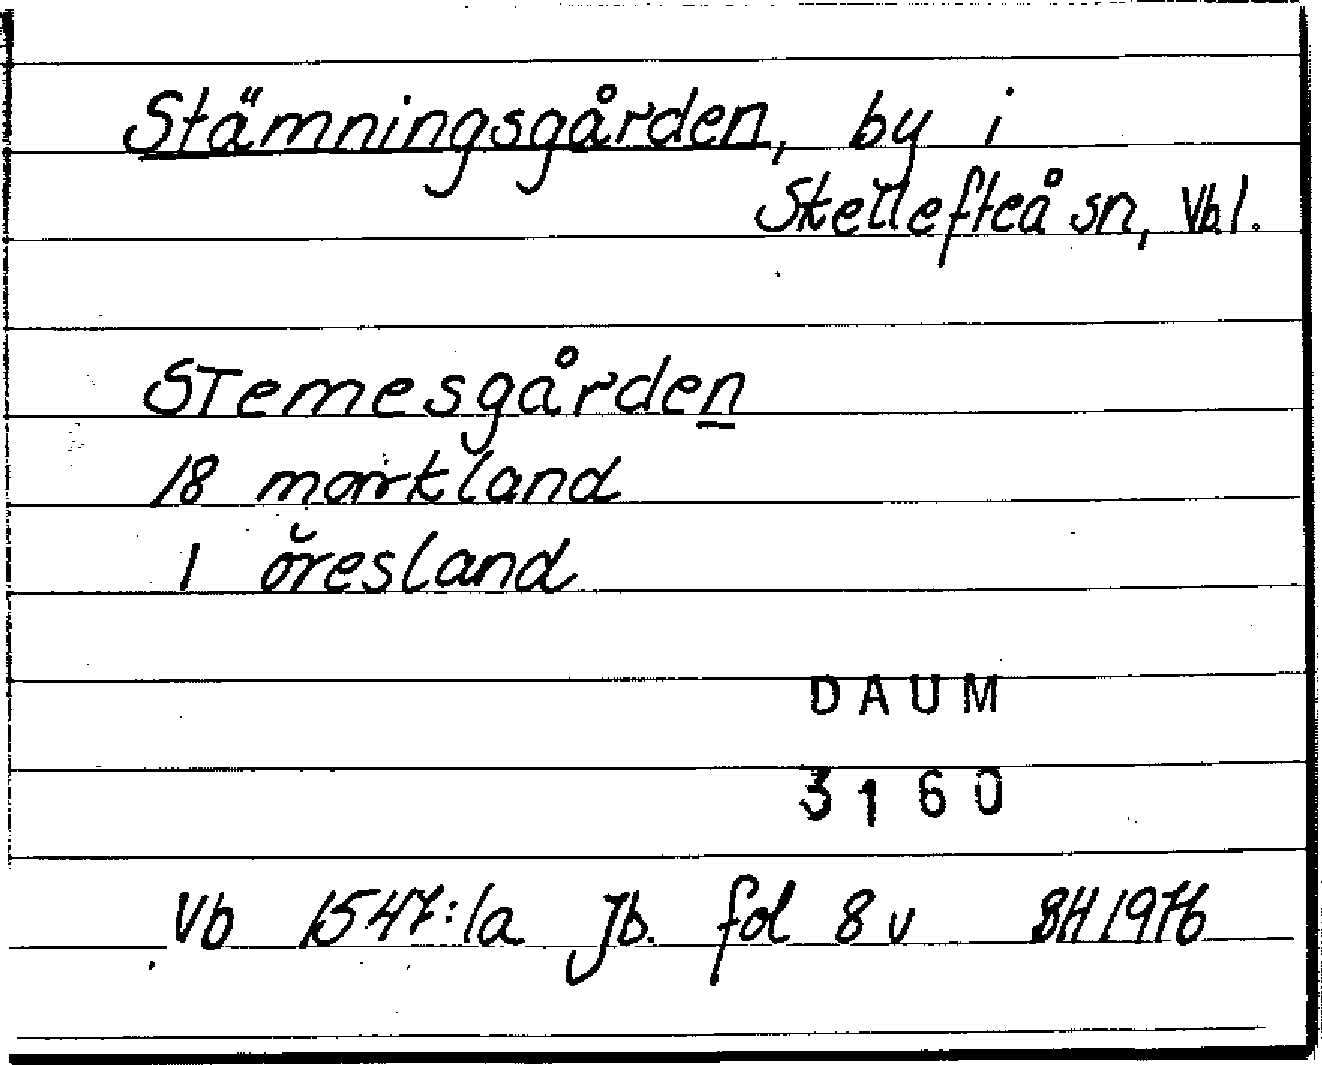 Stämningsgården, by i
Skellefteå sn, Vb l.
Stemesgården
18 markland
1 öresland
DAUM
3160
Vb 1547:1a Jb. fol 8 v BH 1976